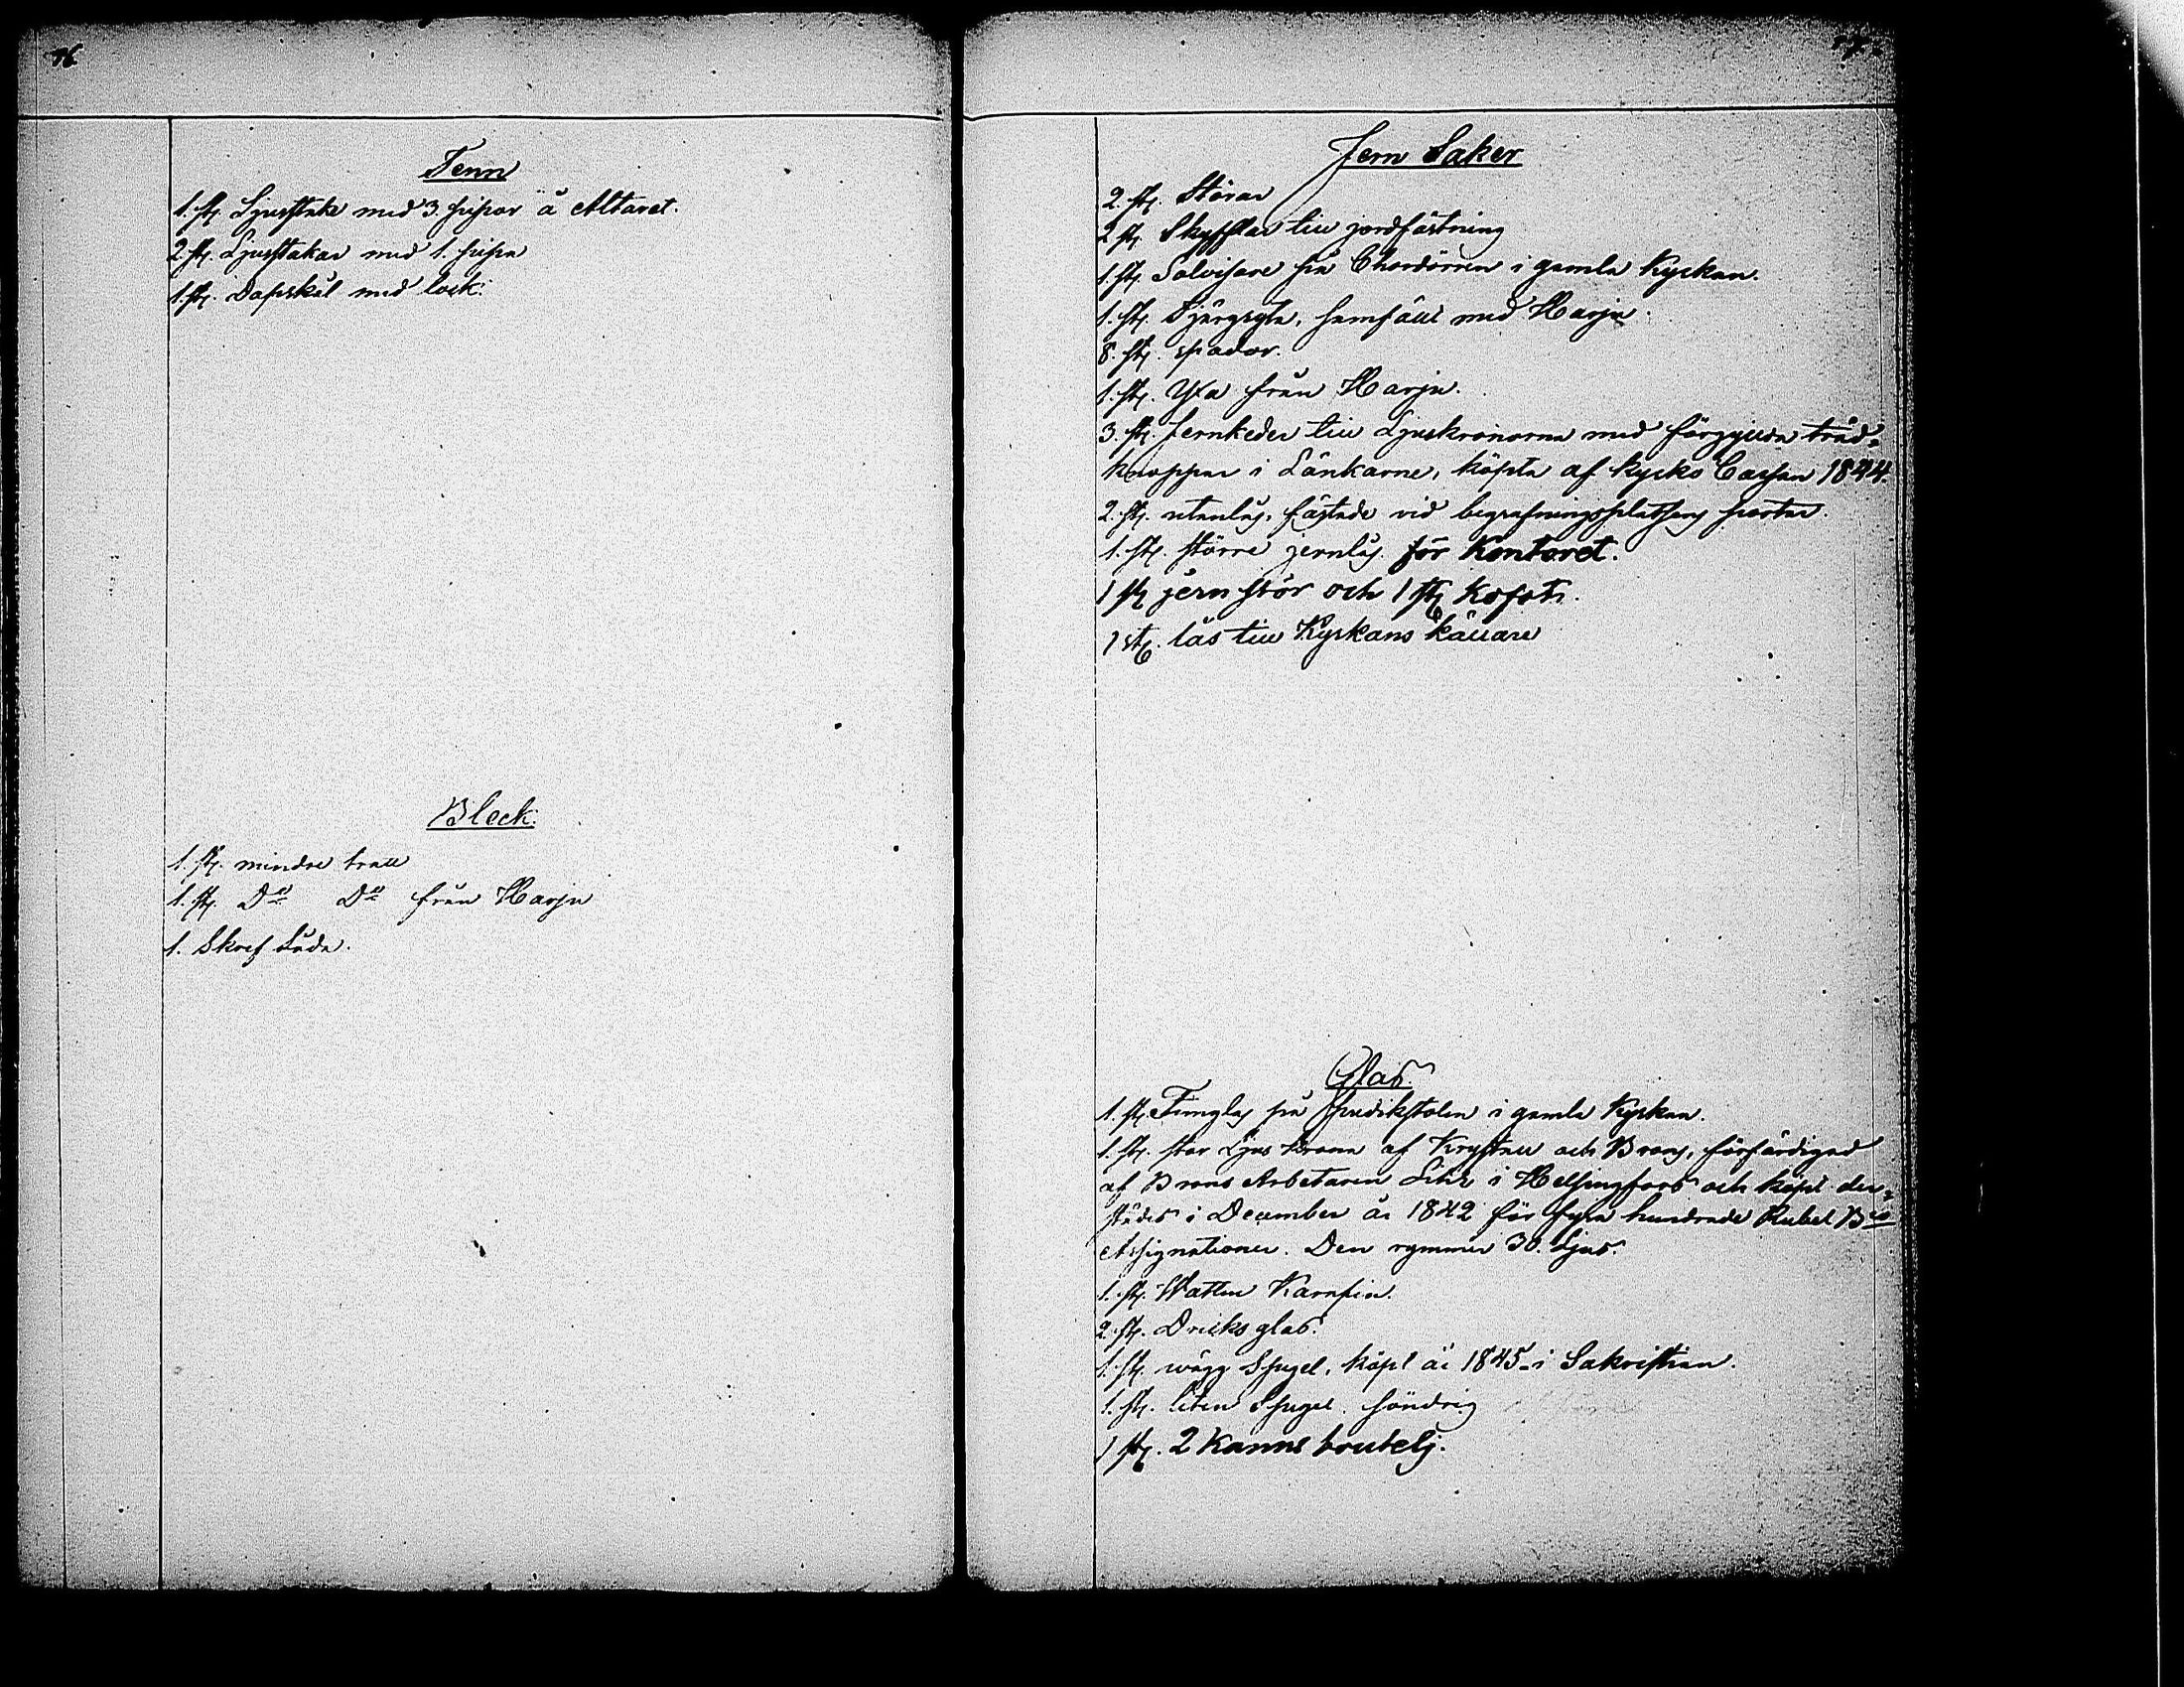 76
Tenn
1. st. Ljusstake med 3. pipor å Altaret.
2. st. Ljusstakar med 1. pipa
1. st. Dopskål med lock.
Bleck.
1. st. mindre tratt
1. st. Do Do från Harju
1. Skrif Låda.
Jern Saker
2. st. Störar
2 st. Skyfflar till jordfästning
1. st. Solvisare på Chordörren i gamla Kyrkan.
1. st. samfält med Harju.
8. st. spador.
1. st. Yxa från Harju.
3. st. Jernkedor till Ljuskronorna med förgyllda träd-
knoppar i Länkarne, köpta af Kyrko Cassan 1844.
2. st. utanlås, fästade vid begrafningsplatsens portar.
1. st. större jernlås för Kontoret.
1 st jern stör och 1 st Kofot.
1 st. lås till Kyrkans källare
Glas.
1. st. Timglas på Predikstolen i gamla Kyrkan.
1. st. stor Ljus Krona af Krystall och Brons, förfärdigad
af Brons Arbetaren i Helsingfors och köpt der-
städes i December år 1842 för fyra hundrade Rubel Bco
Assignationer. Den rymmer 30. Ljus.
1. st. Watten Karafin.
2. st. Dricks glas.
1. st. wägg Spegel, köpt år 1845 i Sakristian.
1. st. liten Spegel. söndrig
1 st. 2 Kanns boutelj.